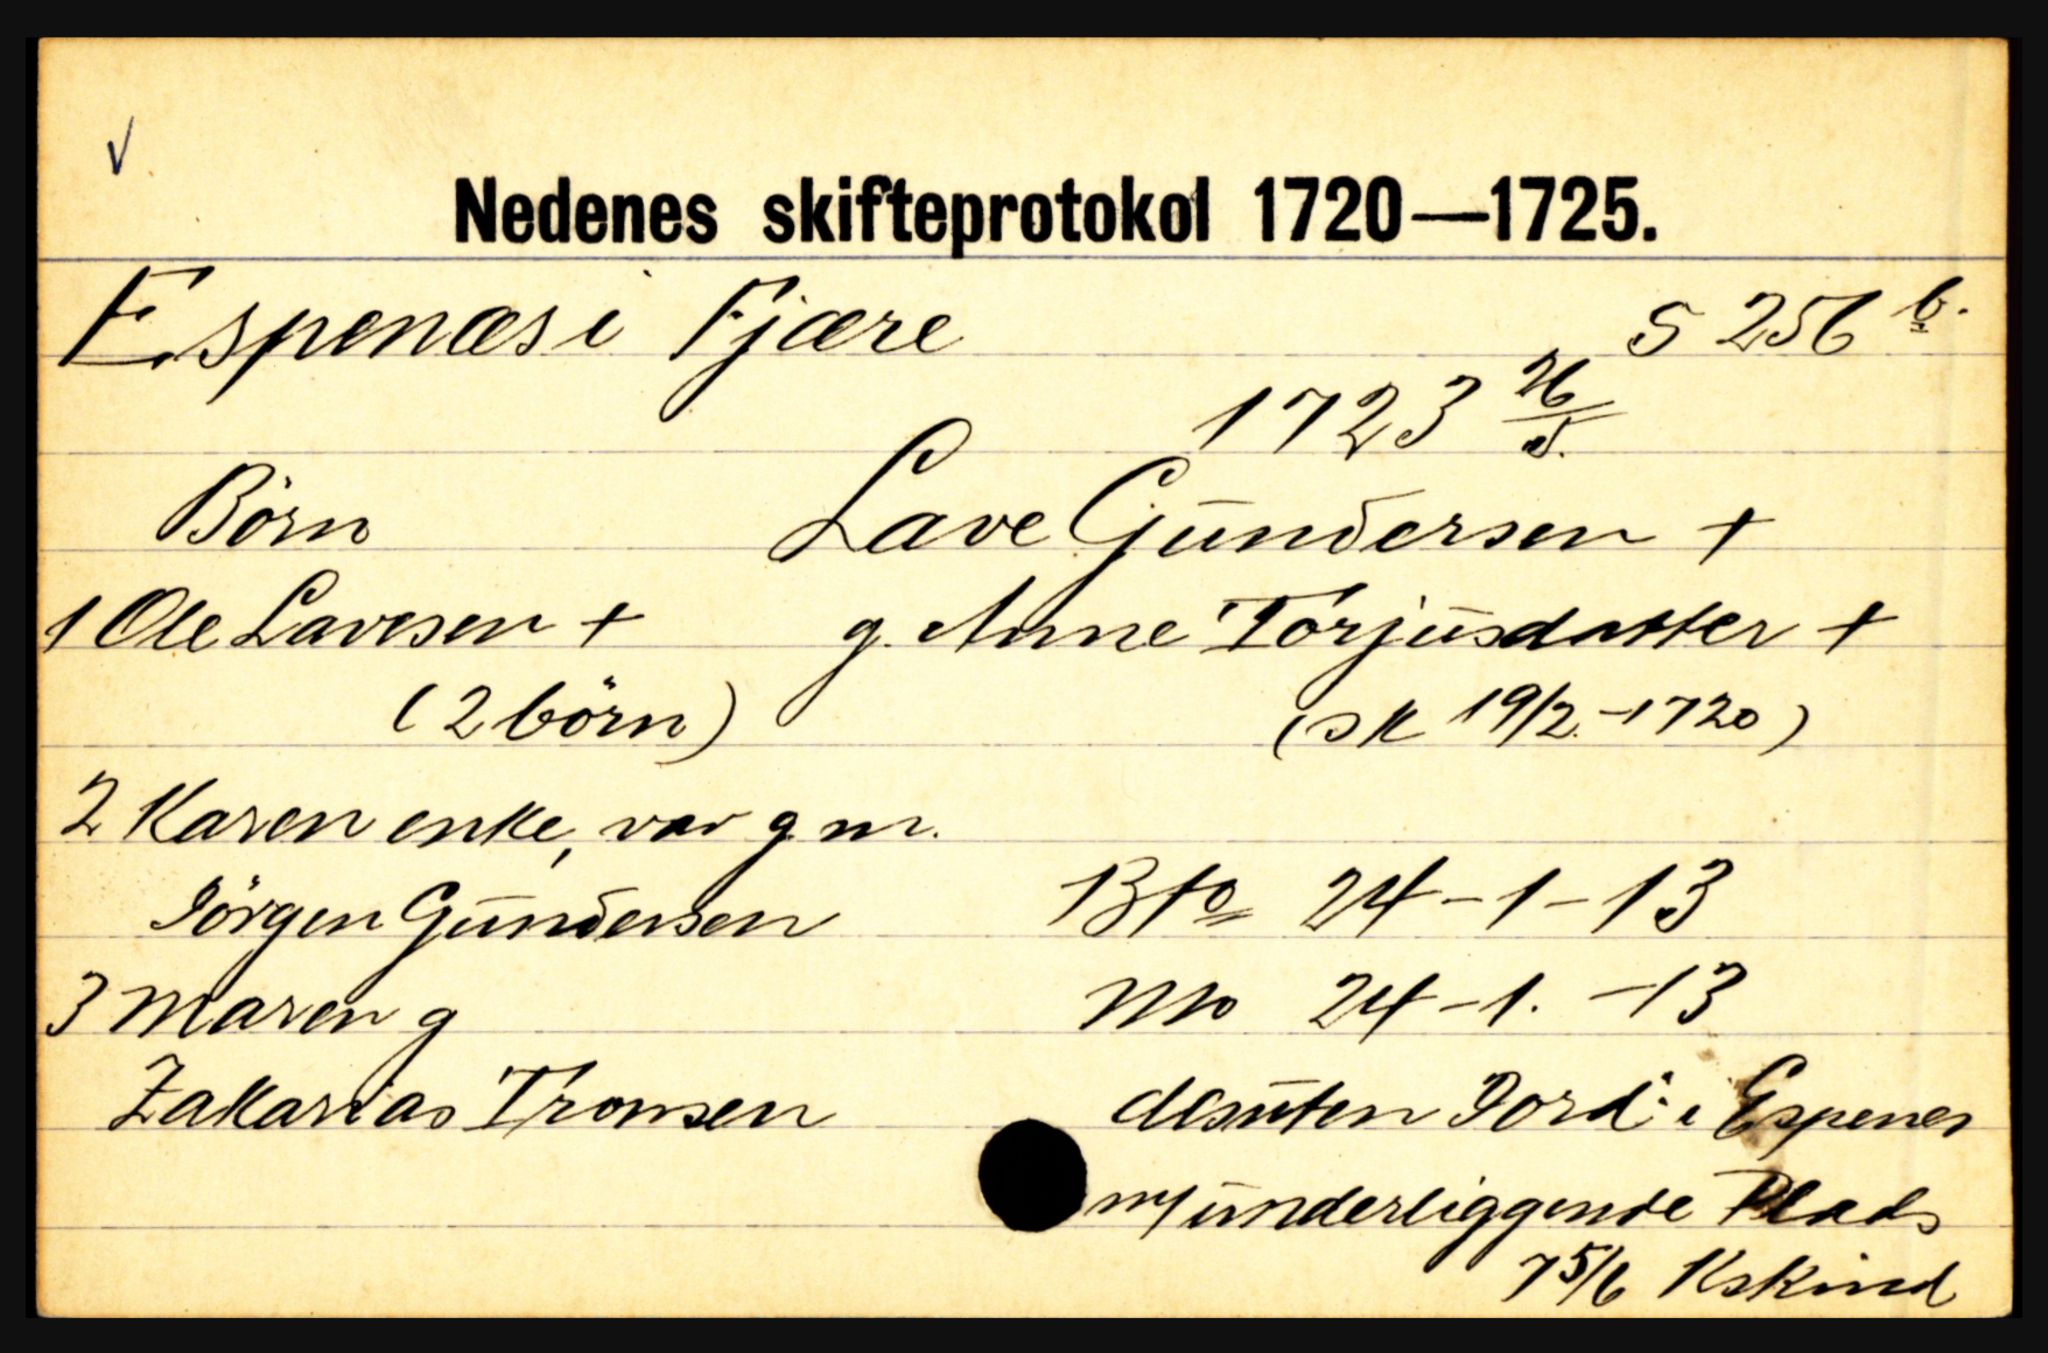 Nedenes skifteprotokol 1720—1725.
Espenæs i Fjære S 256 b.
1723 26/5.
Börn Lave Gundersen +
1 Ole Lavesen + g. Anne Torjusdatter +
(2 börn) (sk 19/2.-1720)
2 Karen enke, var g m.
Jörgen Gundersen Bto 24-1-13
3 Maren g No 24-1.-13
Zakarias Tronsen desuten Jord i Espenes
m/ underliggende Plads
7 5/6 Kskind